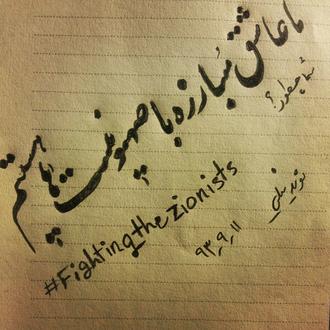 ما عاشق مبارزه با صهیونیست‌ها هستیم
شما چطور؟
#Fighting_the zionists
۹۳_۹_۱۱